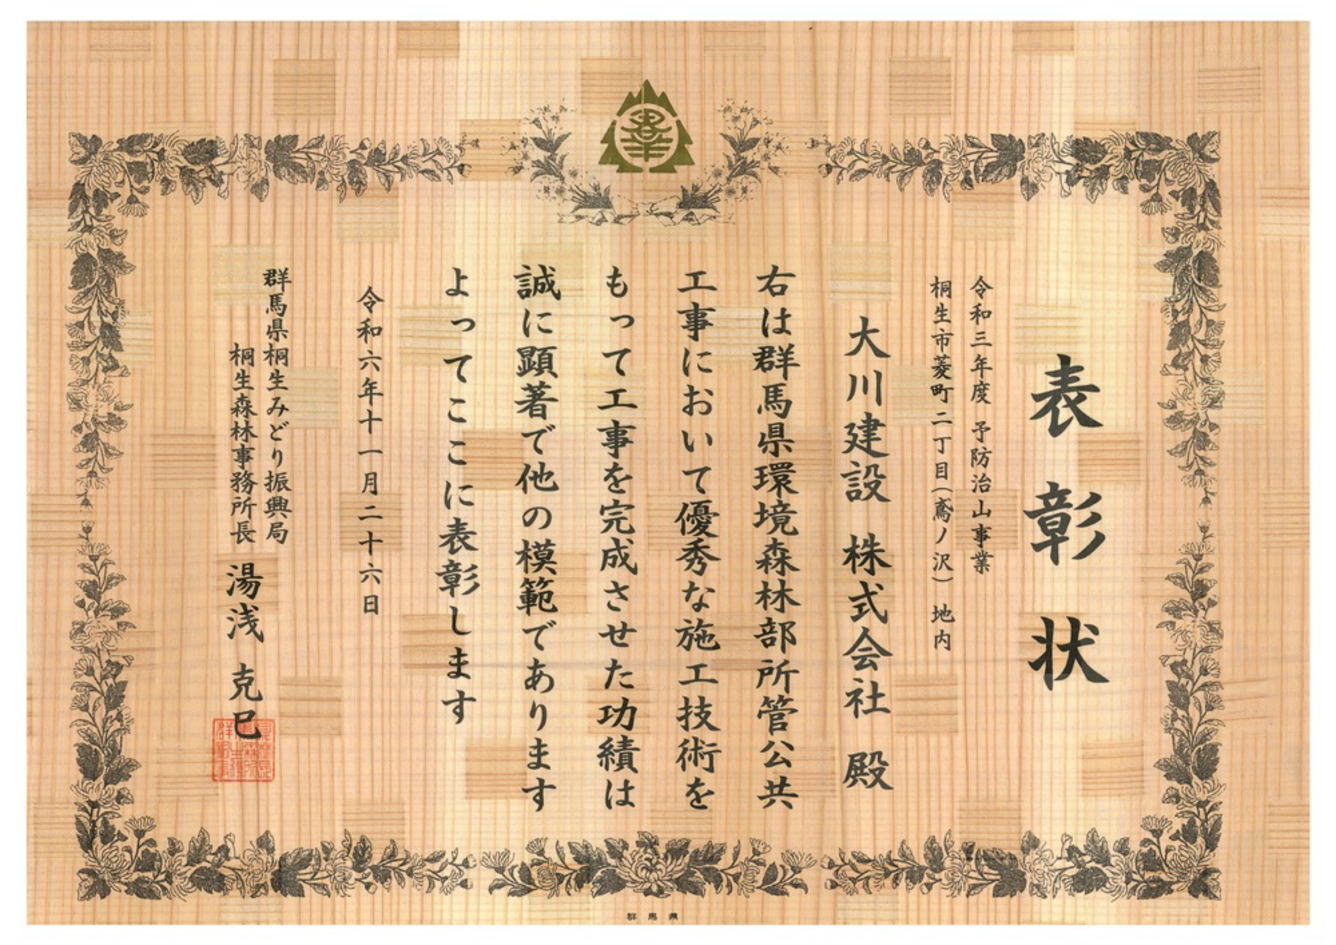 表彰状
令和三年度 予防治山事業
桐生市菱町二丁目(鳶ノ沢) 地内
大川建設 株式会社 殿
右は群馬県環境森林部所管公共
工事において優秀な施工技術を
もって工事を完成させた功績は
誠に顕著で他の模範であります
よってここに表彰します
令和六年十一月二十六日
群馬県桐生みどり振興局
桐生森林事務所長 湯浅 克巳
群馬県